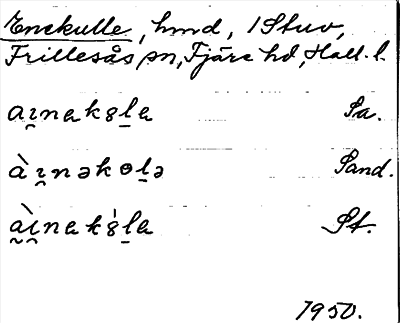 Enekulle, hmd, 1 Stuv,
Frillesås sn, Fjäre hd, Hall. l.
aı̯nek8ḻe Sa.
àı̯nəkɵḻə Sand.
à̰ı̯̀nek8̍ḻe St.
1950.